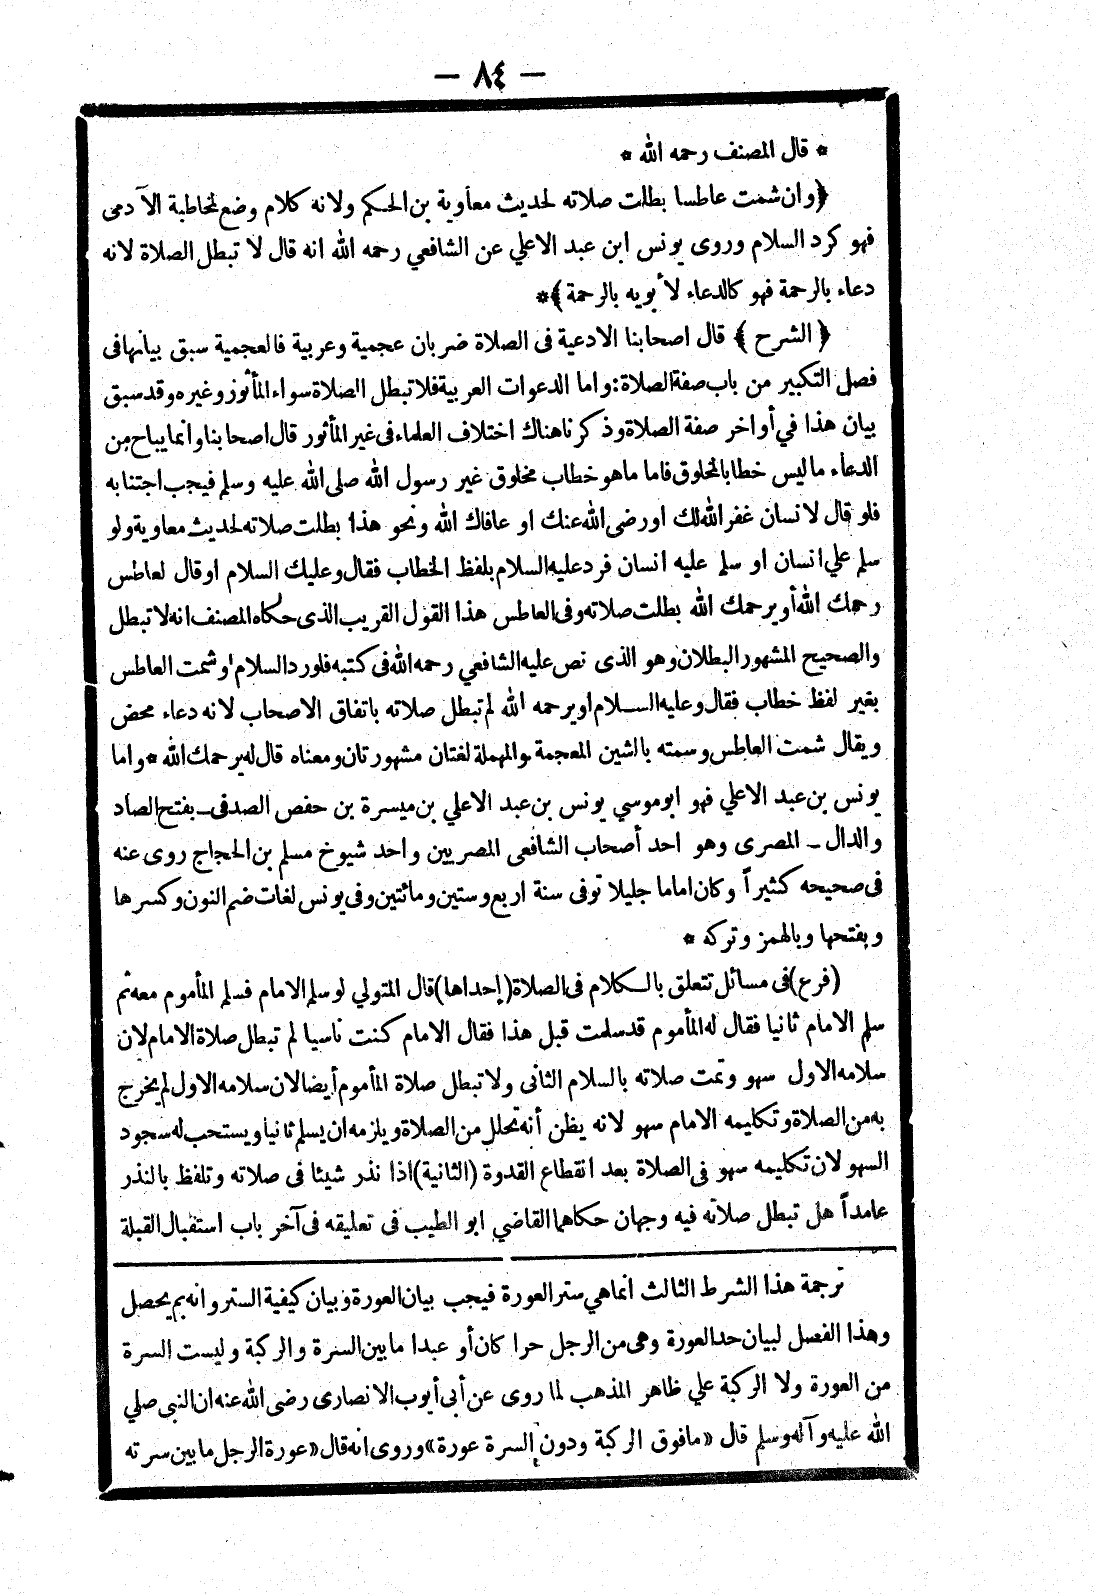 — ٨٤ —
* قال المصنف رحمه الله *
﴿وان شمت عاطسا بطلت صلاته لحديث معاوية بن الحكم ولانه كلام وضع لمخاطبة الآدمى
فهو كرد السلام وروى يونس ابن عبد الاعلي عن الشافعي رحمه الله انه قال لا تبطل الصلاة لانه
دعاء بالرحمة فهو كالدعاء لأبويه بالرحمة﴾*
﴿الشرح﴾ قال اصحابنا الادعية فى الصلاة ضربان عجمية وعربية فالعجمية سبق بيانهافى
فصل التكبير من باب صفة الصلاة: واما الدعوات العربية فلا تبطل الصلاة سواء المأثوز وغيره وقد سبق
بيان هذا في أواخر صفة الصلاة وذكرنا هناك اختلاف العلماء فى غير المأثور قال اصحابنا وانما يباح من
الدعاء ما ليس خطابا لمخلوق فاما ما هو خطاب مخلوق غير رسول الله صلى الله عليه وسلم فيجب اجتنابه
فلو قال لانسان غفر الله لك او رضى الله عنك او عافاك الله ونحو هذا بطلت صلاته لحديث معاوية ولو
سلم علي انسان او سلم عليه انسان فرد عليه السلام بلفظ الخطاب فقال وعليك السلام او قال لعاطس
رحمك الله أو يرحمك الله بطلت صلاته وفى العاطس هذا القول القريب الذى حكاه المصنف انه لا تبطل
والصحيح المشهور البطلان وهو الذى نص عليه الشافعي رحمه الله فى كتبه فلو رد السلام او شمت العاطس
بغير لفظ خطاب فقال وعليه السلام او يرحمه الله لم تبطل صلاته باتفاق الاصحاب لانه دعاء محض
ويقال شمت العاطس وسمته بالشين المعجمة والمهملة لغتان مشهورتان ومعناه قال له يرحمك الله * واما
يونس بن عبد الاعلي فهو ابو موسي يونس بن عبد الاعلي بن ميسرة بن حفص الصدفى - بفتح الصاد
والدال - المصرى وهو احد أصحاب الشافعى المصريين واحد شيوخ مسلم بن الحجاج روى عنه
فى صحيحه كثيراً وكان اماما جليلا توفى سنة اربع وستين ومائتين وفى يونس لغات ضم النون وكسرها
وبفتحها وبالهمز وتركه *
(فرع) فى مسائل تتعلق بالكلام فى الصلاة (إحداها) قال المتولي لو سلم الامام فسلم المأموم معه ثم
سلم الامام ثانيا فقال له المأموم قد سلمت قبل هذا فقال الامام كنت ناسيا لم تبطل صلاة الامام لان
سلامه الاول سهو وتمت صلاته بالسلام الثانى ولا تبطل صلاة المأموم أيضا لان سلامه الاول لم يخرج
به من الصلاة وتكليمه الامام سهو لانه يظن أنه تحلل من الصلاة ويلزمه ان يسلم ثانيا ويستحب له سجود
السهو لان تكليمه سهو فى الصلاة بعد انقطاع القدوة (الثانية) اذا نذر شيئا فى صلاته وتلفظ بالنذر
عامداً هل تبطل صلاته فيه وجهان حكاهما القاضي ابو الطيب فى تعليقه فى آخر باب استقبال القبلة
ترجمة هذا الشرط الثالث انما هي ستر العورة فيجب بيان العورة وبيان كيفية الستر وانه بم يحصل
وهذا الفصل لبيان حد العورة وهى من الرجل حرا كان أو عبدا ما بين السرة والركبة وليست السرة
من العورة ولا الركبة علي ظاهر المذهب لما روى عن أبى أيوب الانصارى رضى الله عنه ان النبى صلي
الله عليه وآله وسلم قال «ما فوق الركبة ودون السرة عورة» وروى انه قال «عورة الرجل ما بين سرته